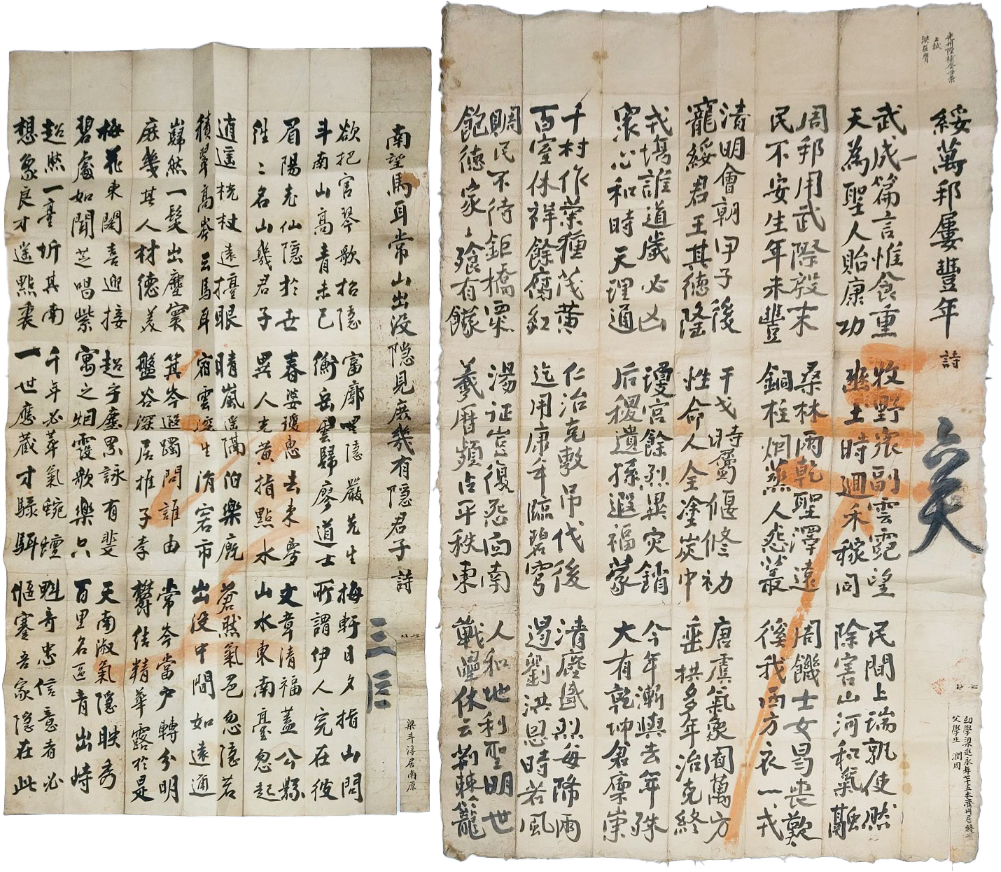 南望馬耳常山出没隱見庶幾有隱君子 詩
欲把宮琴歌招隱 富廓嘿隱嚴先生 梅軒日夕指山問
斗南山高青未已 衡岳雲歸廖道士 所謂伊人完在彼
眉陽先仙隱於世 春婆急去東夢 文章清福蓋公縣
往々名山幾君子 異人先黄指點水 山水東南臺忽起
逍遙杖遠擡眼 晴嵐遙隔泊樂庶 蒼然氣色忽隱若
積翠高岑云馬耳 宿雲深生消宕市 出没中間如遠邇
巋然一髮出塵寰 箕岑遐躅問誰由 常岑當户轉分明
庶幾其人材德美 盤谷深居推子李 欝佶精華露於是
梅花東閣喜迎接 超乎塵累詠有斐 天南淑氣隱映秀
碧處如聞芝唱紫 寓之烟霞歌樂只 百里名區青出峙
超然一臺圻其南 千年必萃氣蜿蟺 魁奇忠信意者必
想象良才遙點裏 一世應藏才騄駬 偃蹇吾家隱在此
梁斗淳居南原
綏萬邦屢豊年 詩
武成一篇言惟食重 牧野張副雲霓望 民間上瑞孰使然
天為聖人貽康功 豳土時週禾稼同 除害山河和氣融
周邦用武際殷末 桑林雨乾聖澤遠 周饑士女曷喪歎
民不安生年未豊 銅柱烟蒸人怨叢 徯我西方衣一戎
清明會朝甲子後 干戈時屬偃修初 唐虞氣象囿萬方
寵綏君王其德隆 性命人全塗炭中 垂拱多年治克終
戎場誰道歲必凶 宮餘烈異灾銷 今年漸興去年殊
衆心和時天理通 后稷遺孫遐福蒙 大有乾坤倉廩崇
千村作葉種茂黄 仁治克敷吊伐後 清塵盛則每降雨
百室休祥餘腐紅 迄用康年臨碧穹 遏劉洪恩時若風
賙民不待鉅橋粟 湯征豈復怨西南 人和地利聖明世
飽德家々飱有饛 羲曆頻占平秩東 戰壘休云荊棘籠